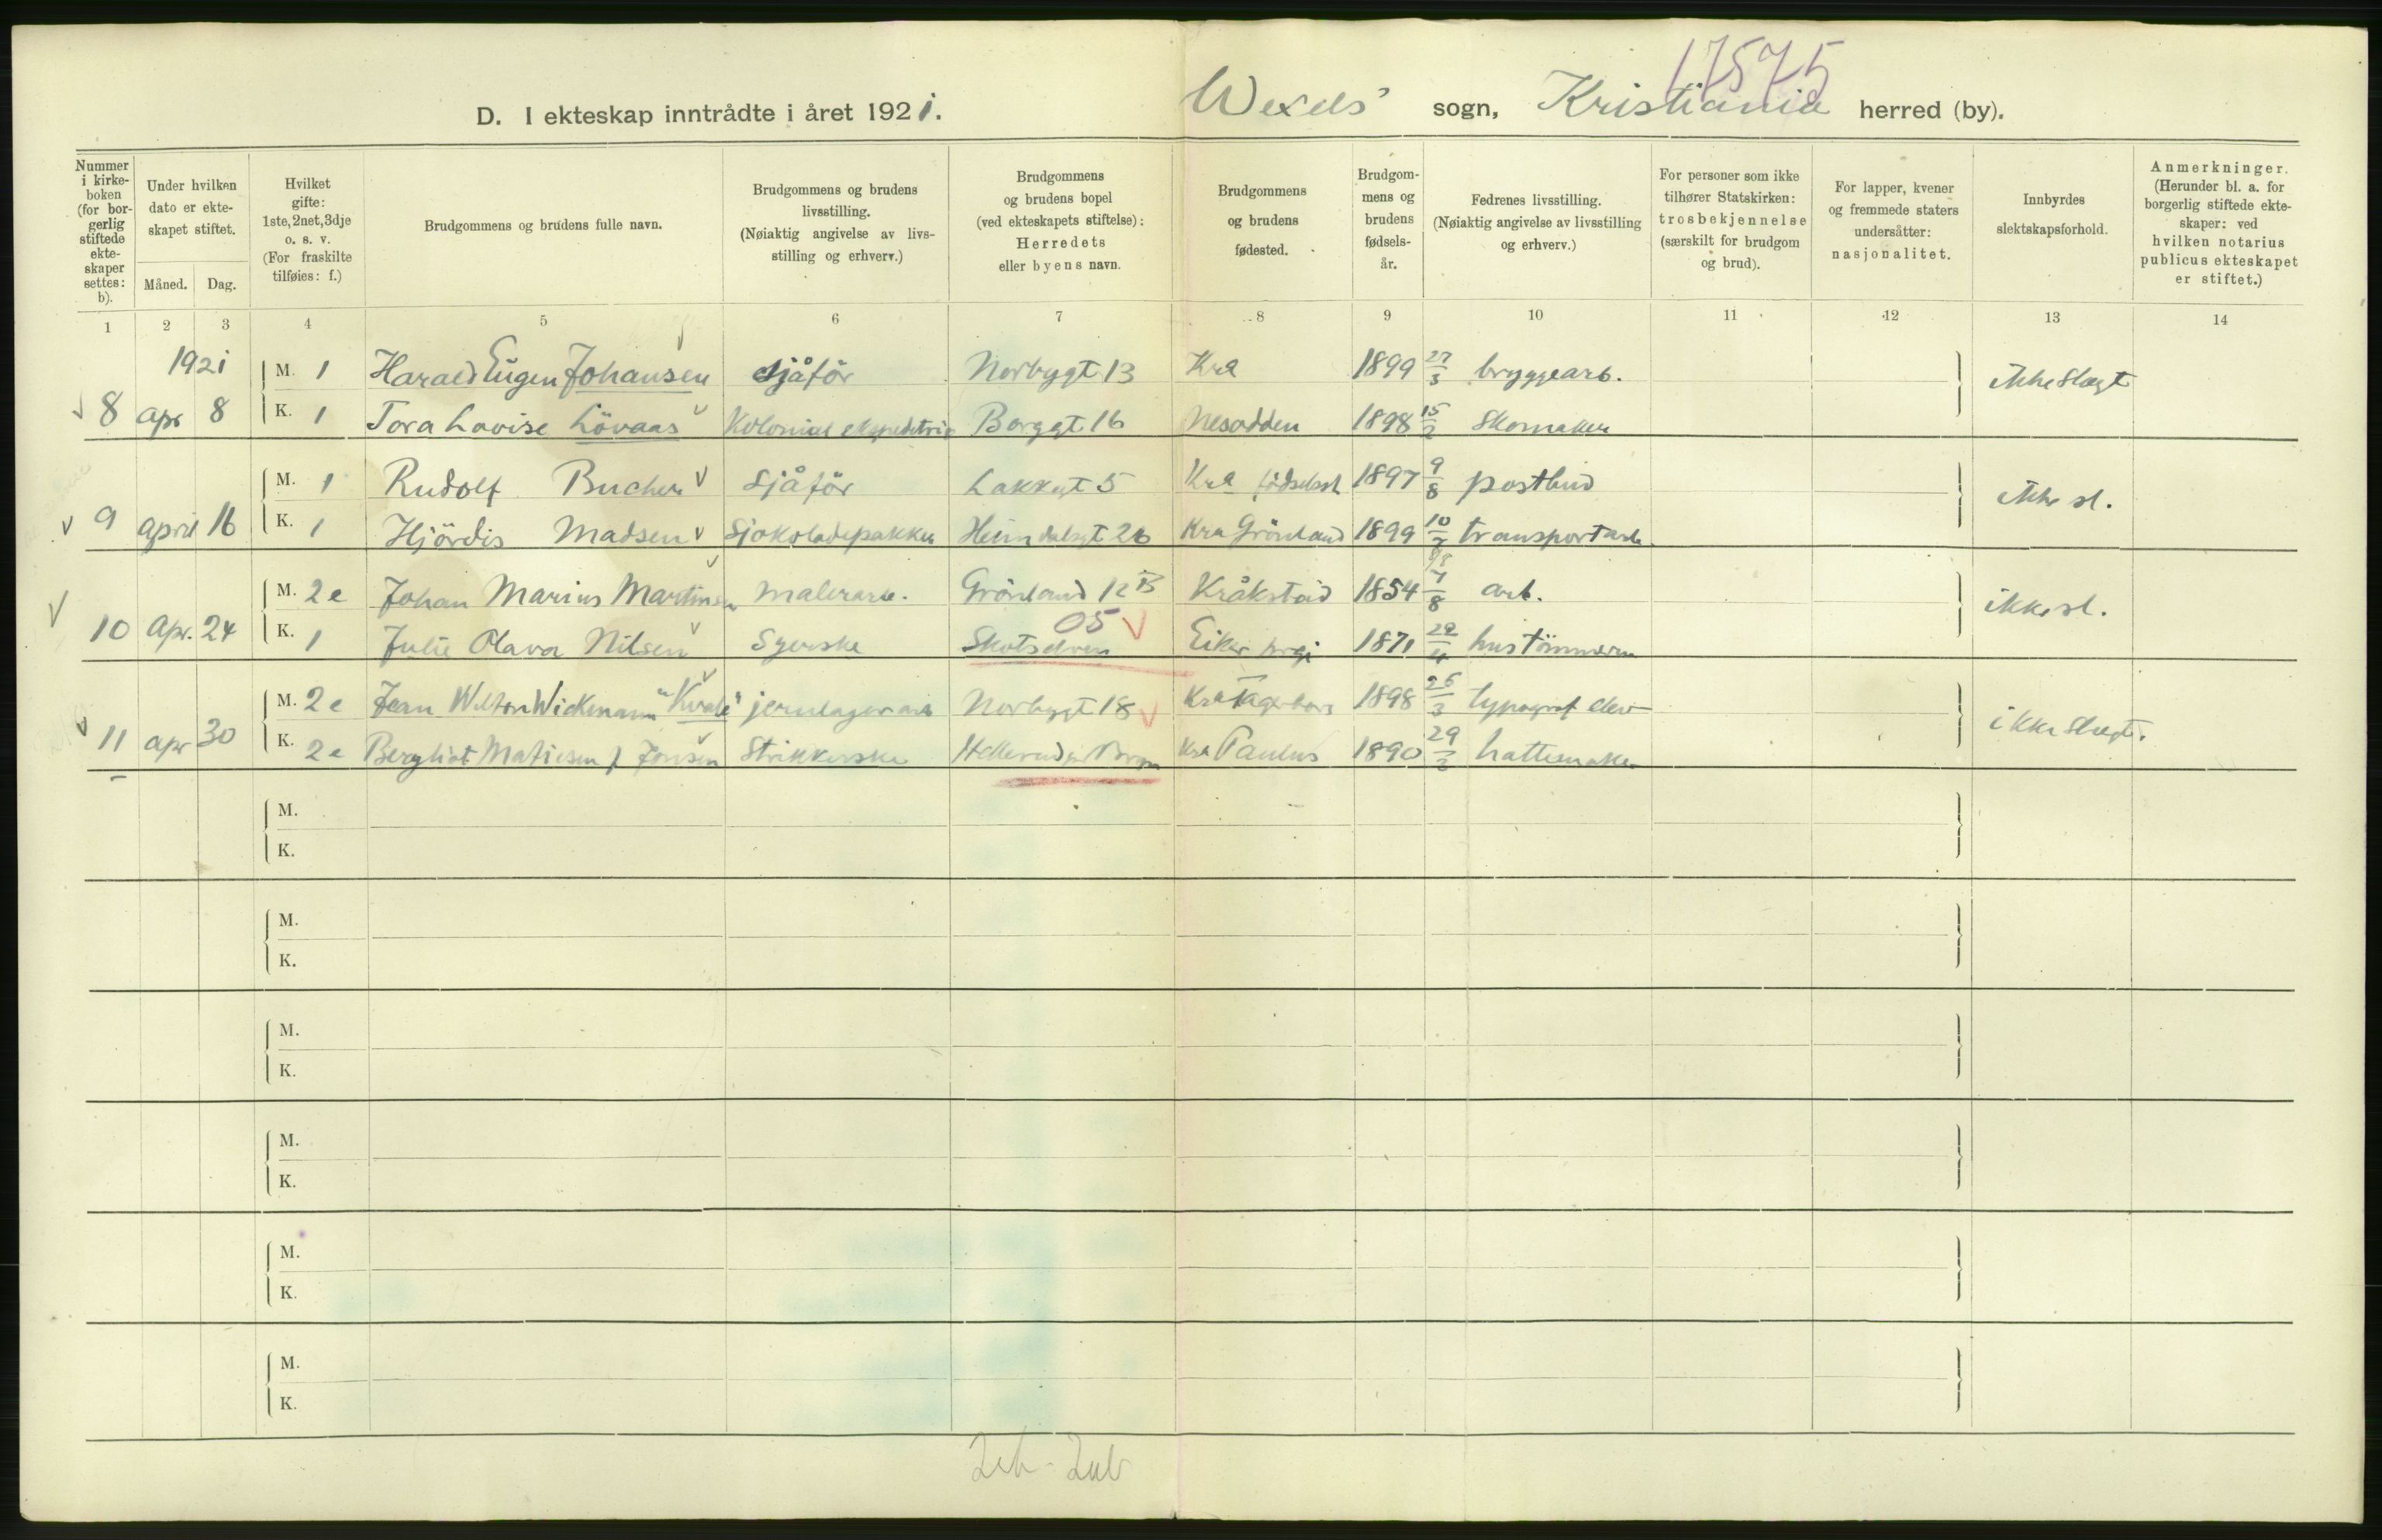 17575
D. I ekteskap inntrådte i året 1921. Wexels' sogn, Kristiania herred (by).
Nummer i kirkeboken (for borgerlig stiftede ekteskaper settes: b).
Under hvilken dato er ekteskapet stiftet.
Måned. Dag.
Hvilket gifte: 1ste, 2net, 3dje o. s. v. (For fraskilte tilføies: f.)
Brudgommens og brudens fulle navn.
Brudgommens og brudens livsstilling. (Nøiaktig angivelse av livsstilling og erhverv.)
Brudgommens og brudens bopel (ved ekteskapets stiftelse): Herredets eller byens navn.
Brudgommens og brudens fødested.
Brudgommens og brudens fødselsår.
Fedrenes livsstilling. (Nøiaktig angivelse av livsstilling og erhverv.)
For personer som ikke tilhører Statskirken: trosbekjennelse (særskilt for brudgom og brud).
For lapper, kvener og fremmede staters undersåtter: nasjonalitet.
Innbyrdes slektskapsforhold.
Anmerkninger. (Herunder bl. a. for borgerlig stiftede ekteskaper: ved hvilken notarius publicus ekteskapet er stiftet.)
1 2 3 4 5 6 7 8 9 10 11 12 13 14
1921 M. 1 Harald Eugen Johansen sjåför Norbygt 13 Kra 1899 27/3 bryggearb. ikke Slægt
8 apr 8 K. 1 Tora Lovise Lövaas Kolonial Borggt 16 Nesodden 1898 15/2 Skomaker
M. 1 Rudolf Bucher Sjåför Lakkegt 5 Kra fødselsst 1897 9/8 postbud ikke sl.
9 april 16 K. 1 Hjördis Madsen Sjokoladepakker Heimdalsgt 26 Kra Grönland 1899 10/7 transportarb.
M. 2e Johan Marius Martinsen malerarb. Grönland 12 B Kråkstad 1854 7/8 arb. ikke sl.
05
10 apr. 24 K. 1 Julie Olava Nilsen Syerske Skotselven Eiker 1871 hustömmerm
M. 2e Jean Wilhem Wickmann "Kvale" jernlagerarb Norbygt 18 Kra Fagerborg 1898 26/3 typograf ikke Slægt.
11 apr 30 K. 2e Bergliot Matiesen f Jonsen Strikkerske Kra Paulus 1890 hattemaker
M.
K.
M.
K.
M.
K.
M.
K.
M.
K.
M.
K.